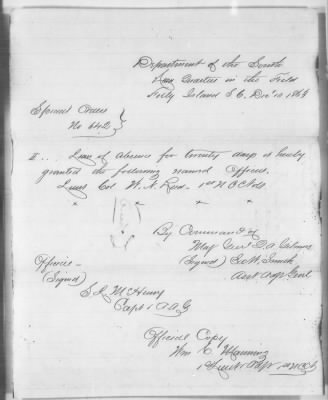 Department of the South
Head Quarters in the Field
Folly Island S.C. Dec 10 1863
Special Orders
No 642
II... Leave of absence for twenty days is hereby
granted the following named Officer.
Lieut Col W. N. Reed - 1st N C Vols
By Command of
Maj Genl Q A Gilmore
Official - (Signed) Ed W. Smith
(Signed) Asst Adjt Genl
S. J. McHenry
Capt & A A G
Official Copy
Wm E. Manning
1st Lieut & Adjt 1st N C V